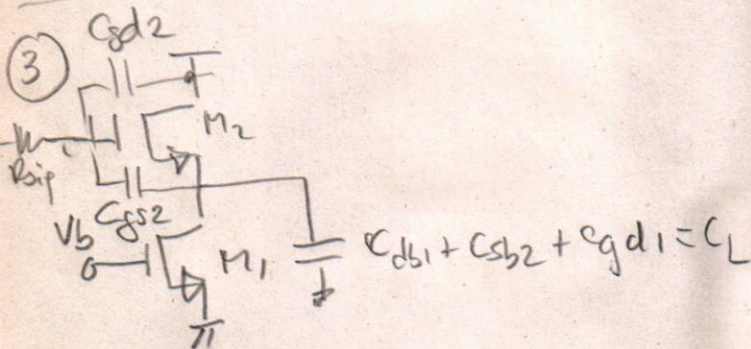 3
Cgd2
M2
Rsig
Cgs2
Vb
M1
Cdb1 + Csb2 + Cgd1 = CL